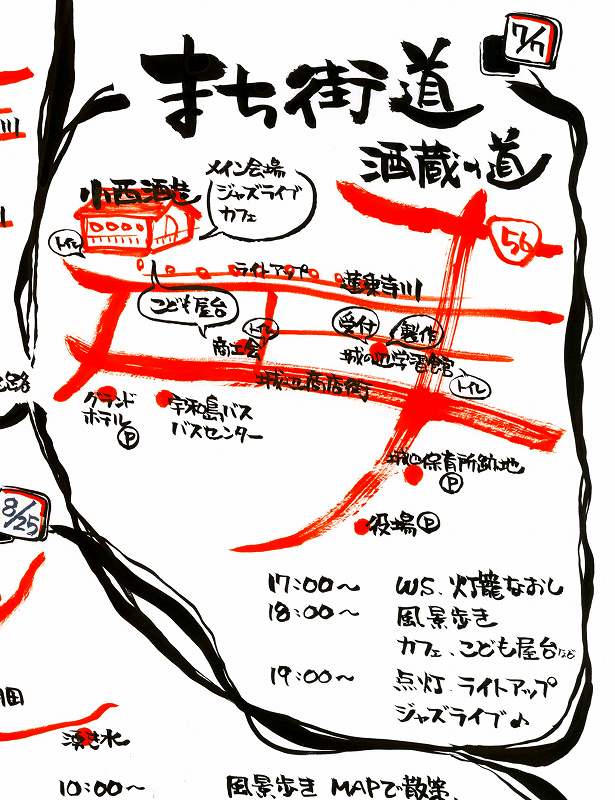 7/7
まち街道
酒蔵の道
小西酒造
メイン会場
ジャズライブ
カフェ
トイレ
56
ライトアップ
蓮乗寺川
こども屋台
商工会
トイレ
受付
製作
城の辺学習館
トイレ
城の辺商店街
グランド
ホテル
P
宇和島バス
バスセンター
城辺保育所跡地
P
役場 P
8/25
17:00～ WS.灯籠なおし
18:00～ 風景歩き
カフェ、こども屋台など
19:00～ 点灯.ライトアップ
ジャズライブ♪
湧き水
10:00～ 風景歩き MAPで散策.